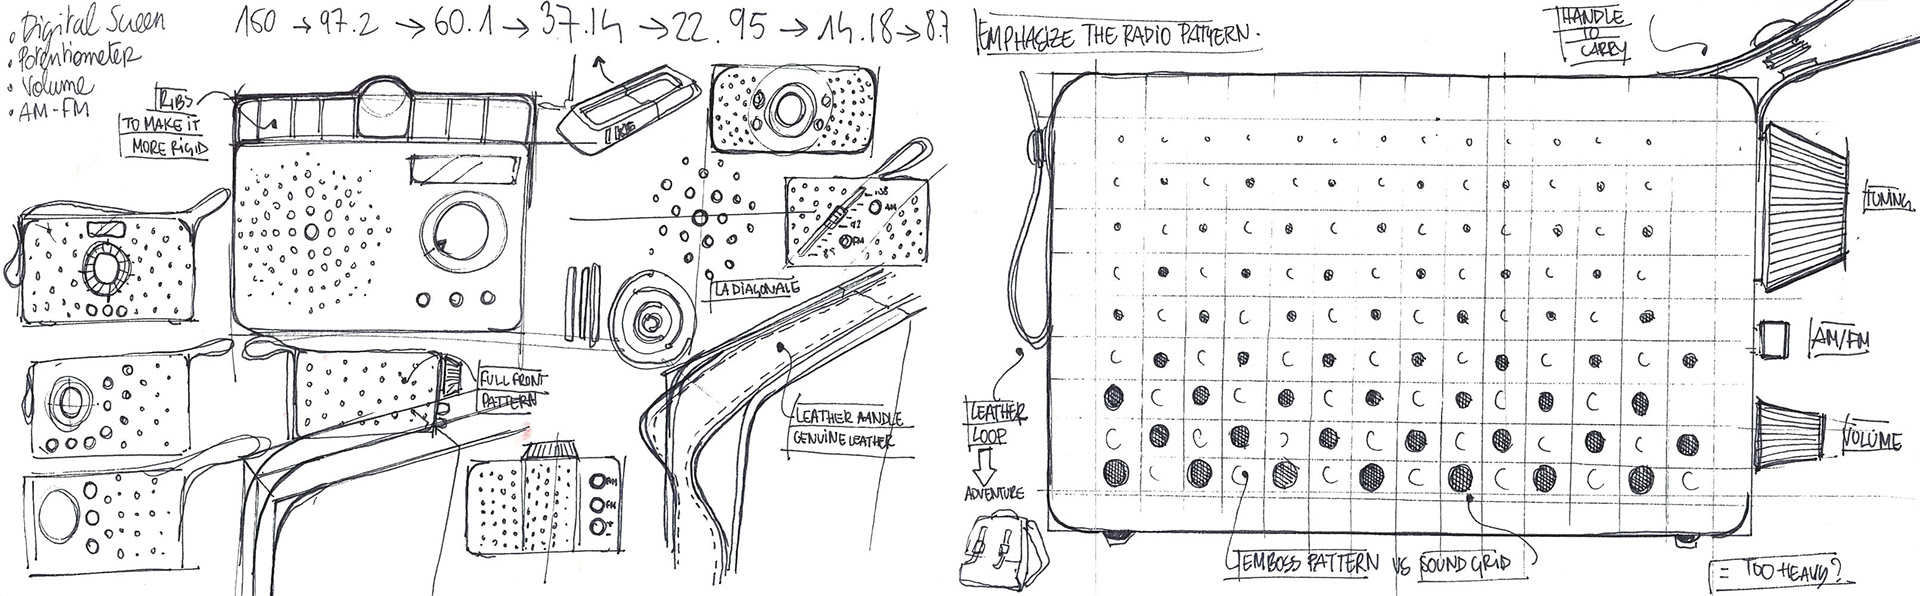 • Digital Screen
• Potentiometer
• Volume
• AM-FM
150 → 97.2 → 60.1 → 37.14 → 22.95 → 14.18 → 8.7
RIBS
TO MAKE IT
MORE RIGID
108
AM
92
FM
LA DIAGONALE
FULL FRONT
PATTERN
LEATHER HANDLE
GENUINE LEATHER
AM
FM
EMPHASIZE THE RADIO PATTERN.
HANDLE
TO
CARRY
TUNING
AM/FM
VOLUME
LEATHER
LOOP
ADVENTURE
EMBOSS PATTERN VS SOUND GRID
= TOO HEAVY?